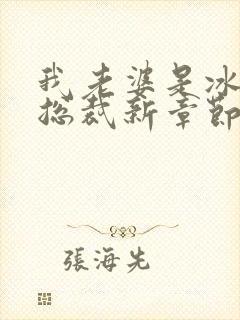 我老婆是冰
总裁新章節
張海先